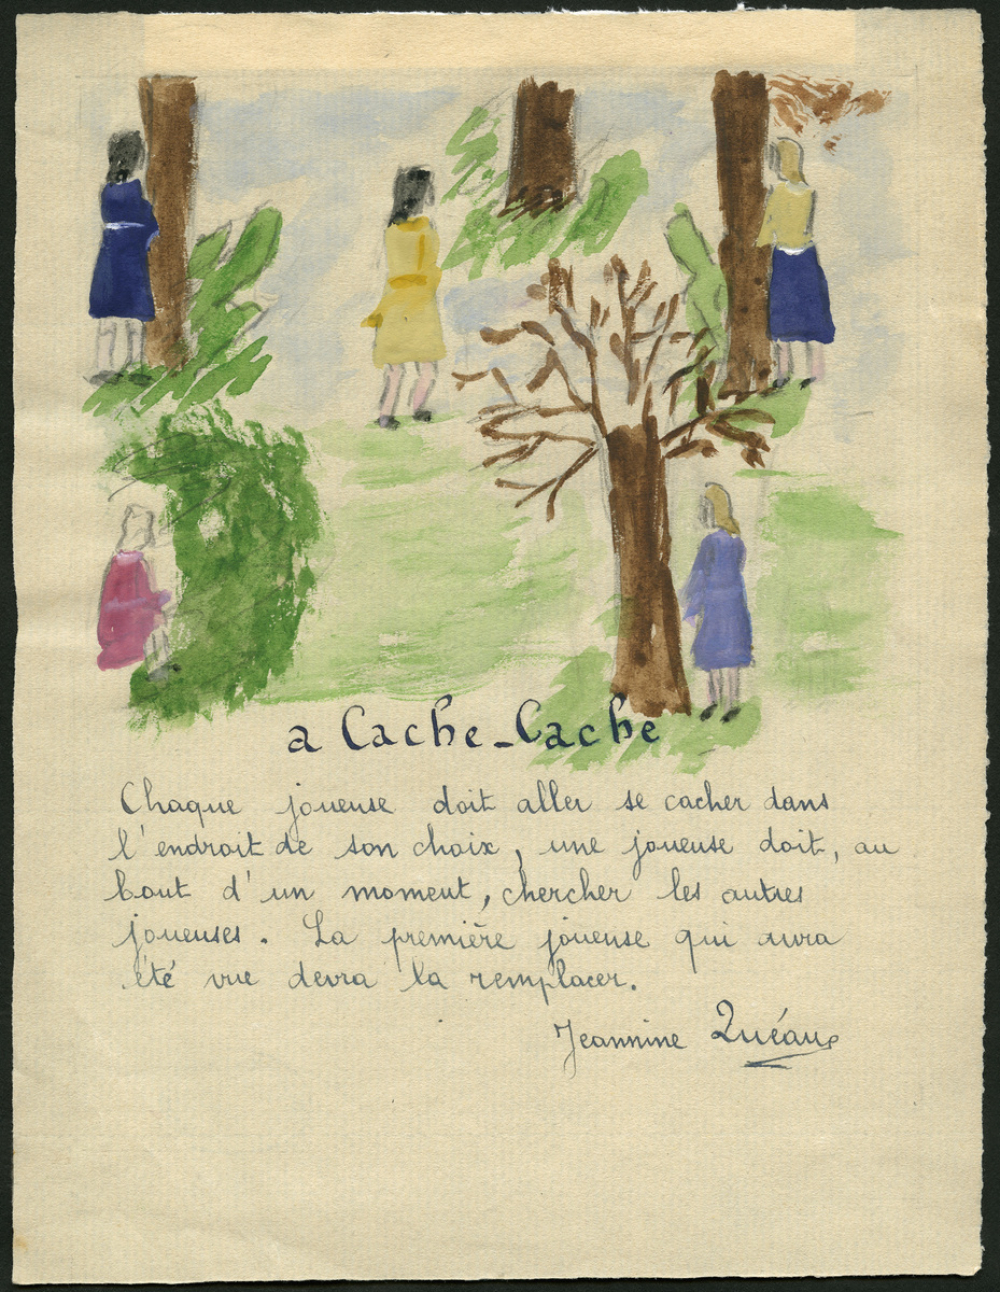 a Cache-Cache
Chaque joueuse doit aller se cacher dans
l'endroit de son choix, une joueuse doit, au
bout d'un moment, chercher les autres
joueuses. La première joueuse qui aura
été vue devra la remplacer.
Jeannine Quéau